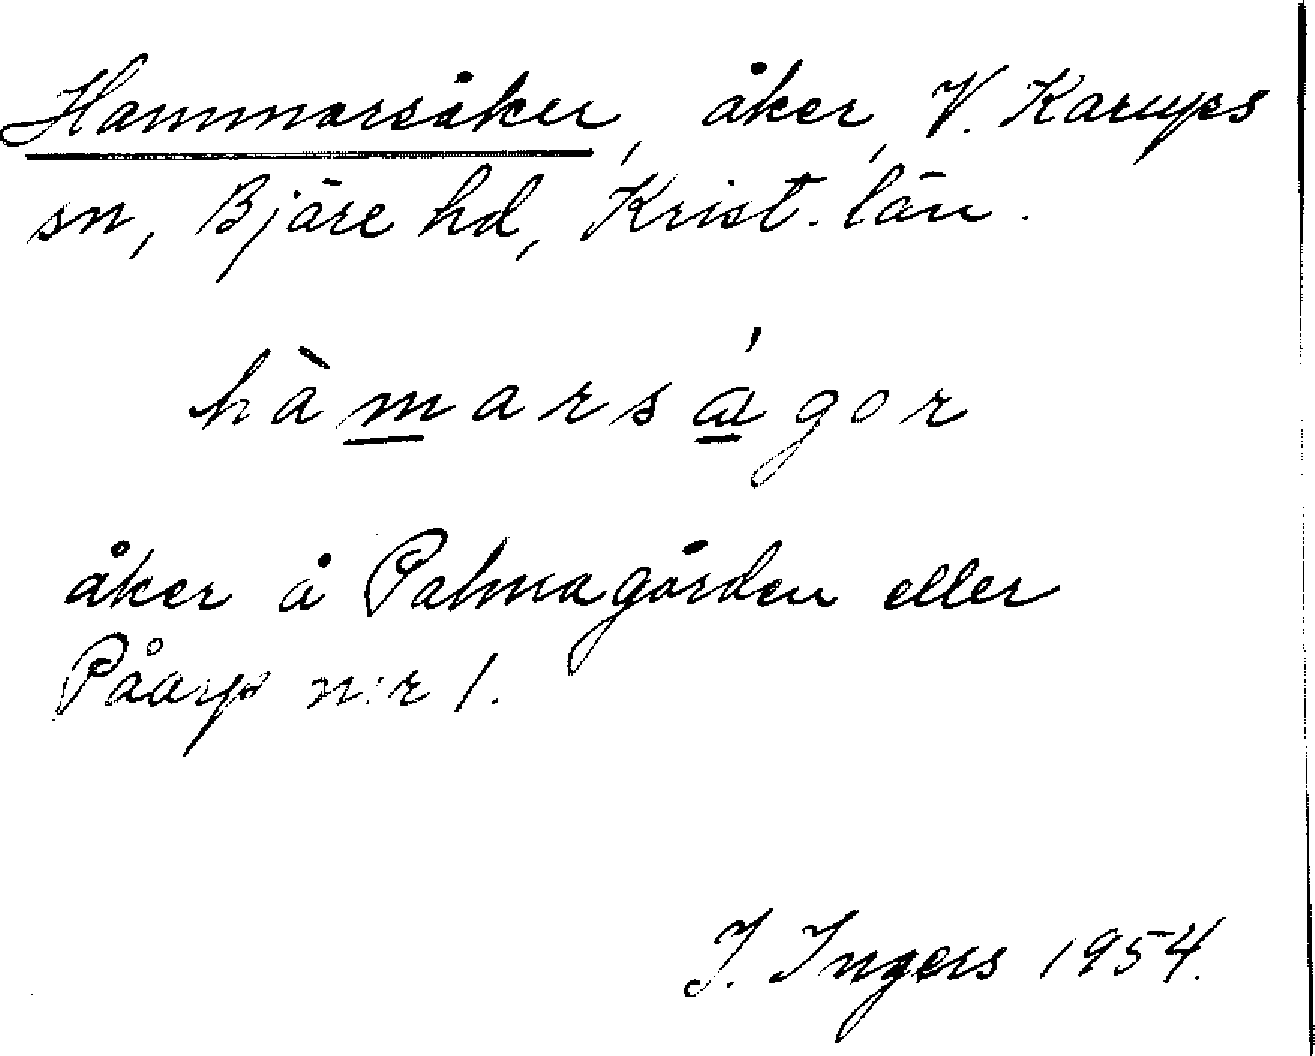 Hammarsåker, åker, V. Karups
sn, Bjäre hd, Krist. län.
hàmarságor
åker å Palmagården eller
Påarp n:r 1.
J. Ingers 1954.